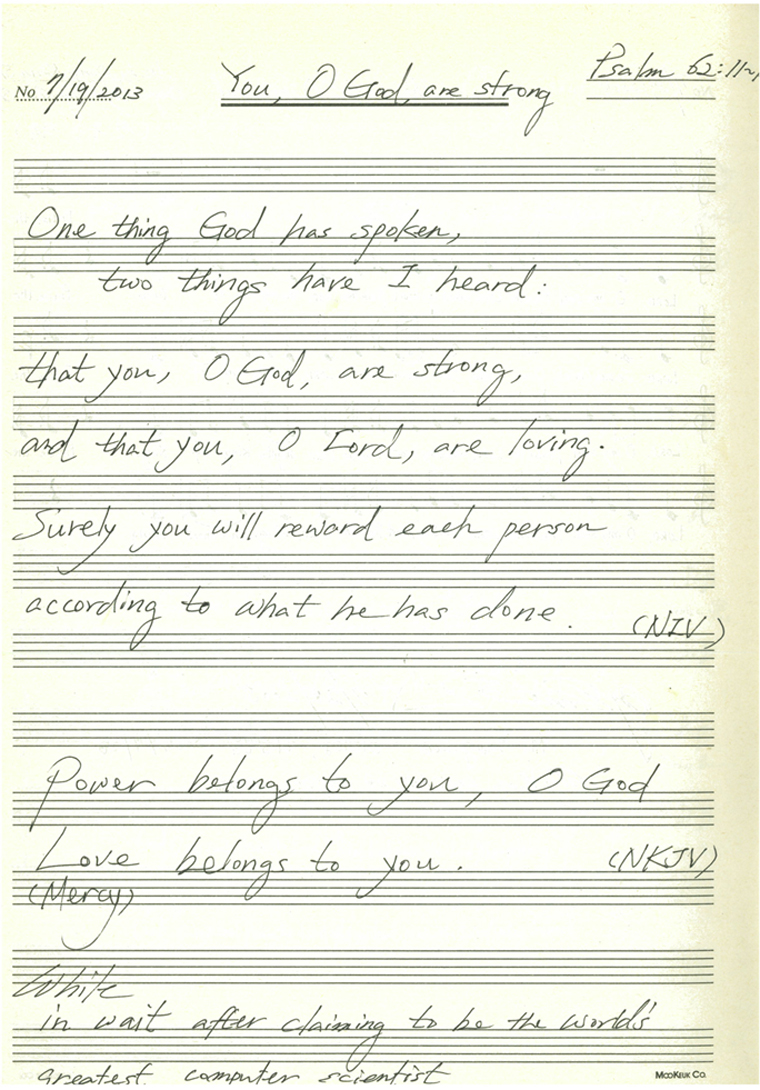 No 7/19/2013
You, O God, are strong
Psalm 62:11~
One thing God has spoken,
two things have I heard:
that you, O God, are strong,
and that you, O Lord, are loving.
Surely you will reward each person
according to what he has done.
(NIV)
Power belongs to you, O God
Love belongs to you. (NKJV)
(Mercy)
While
in wait after claiming to be the world's
greatest computer scientist
MOOKEUK CO.